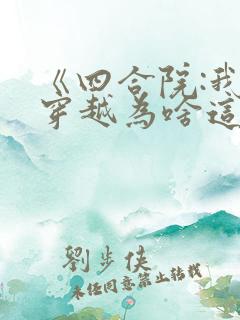 《四合院:我
穿越为啥這
劉步俠
未经同意禁止转载